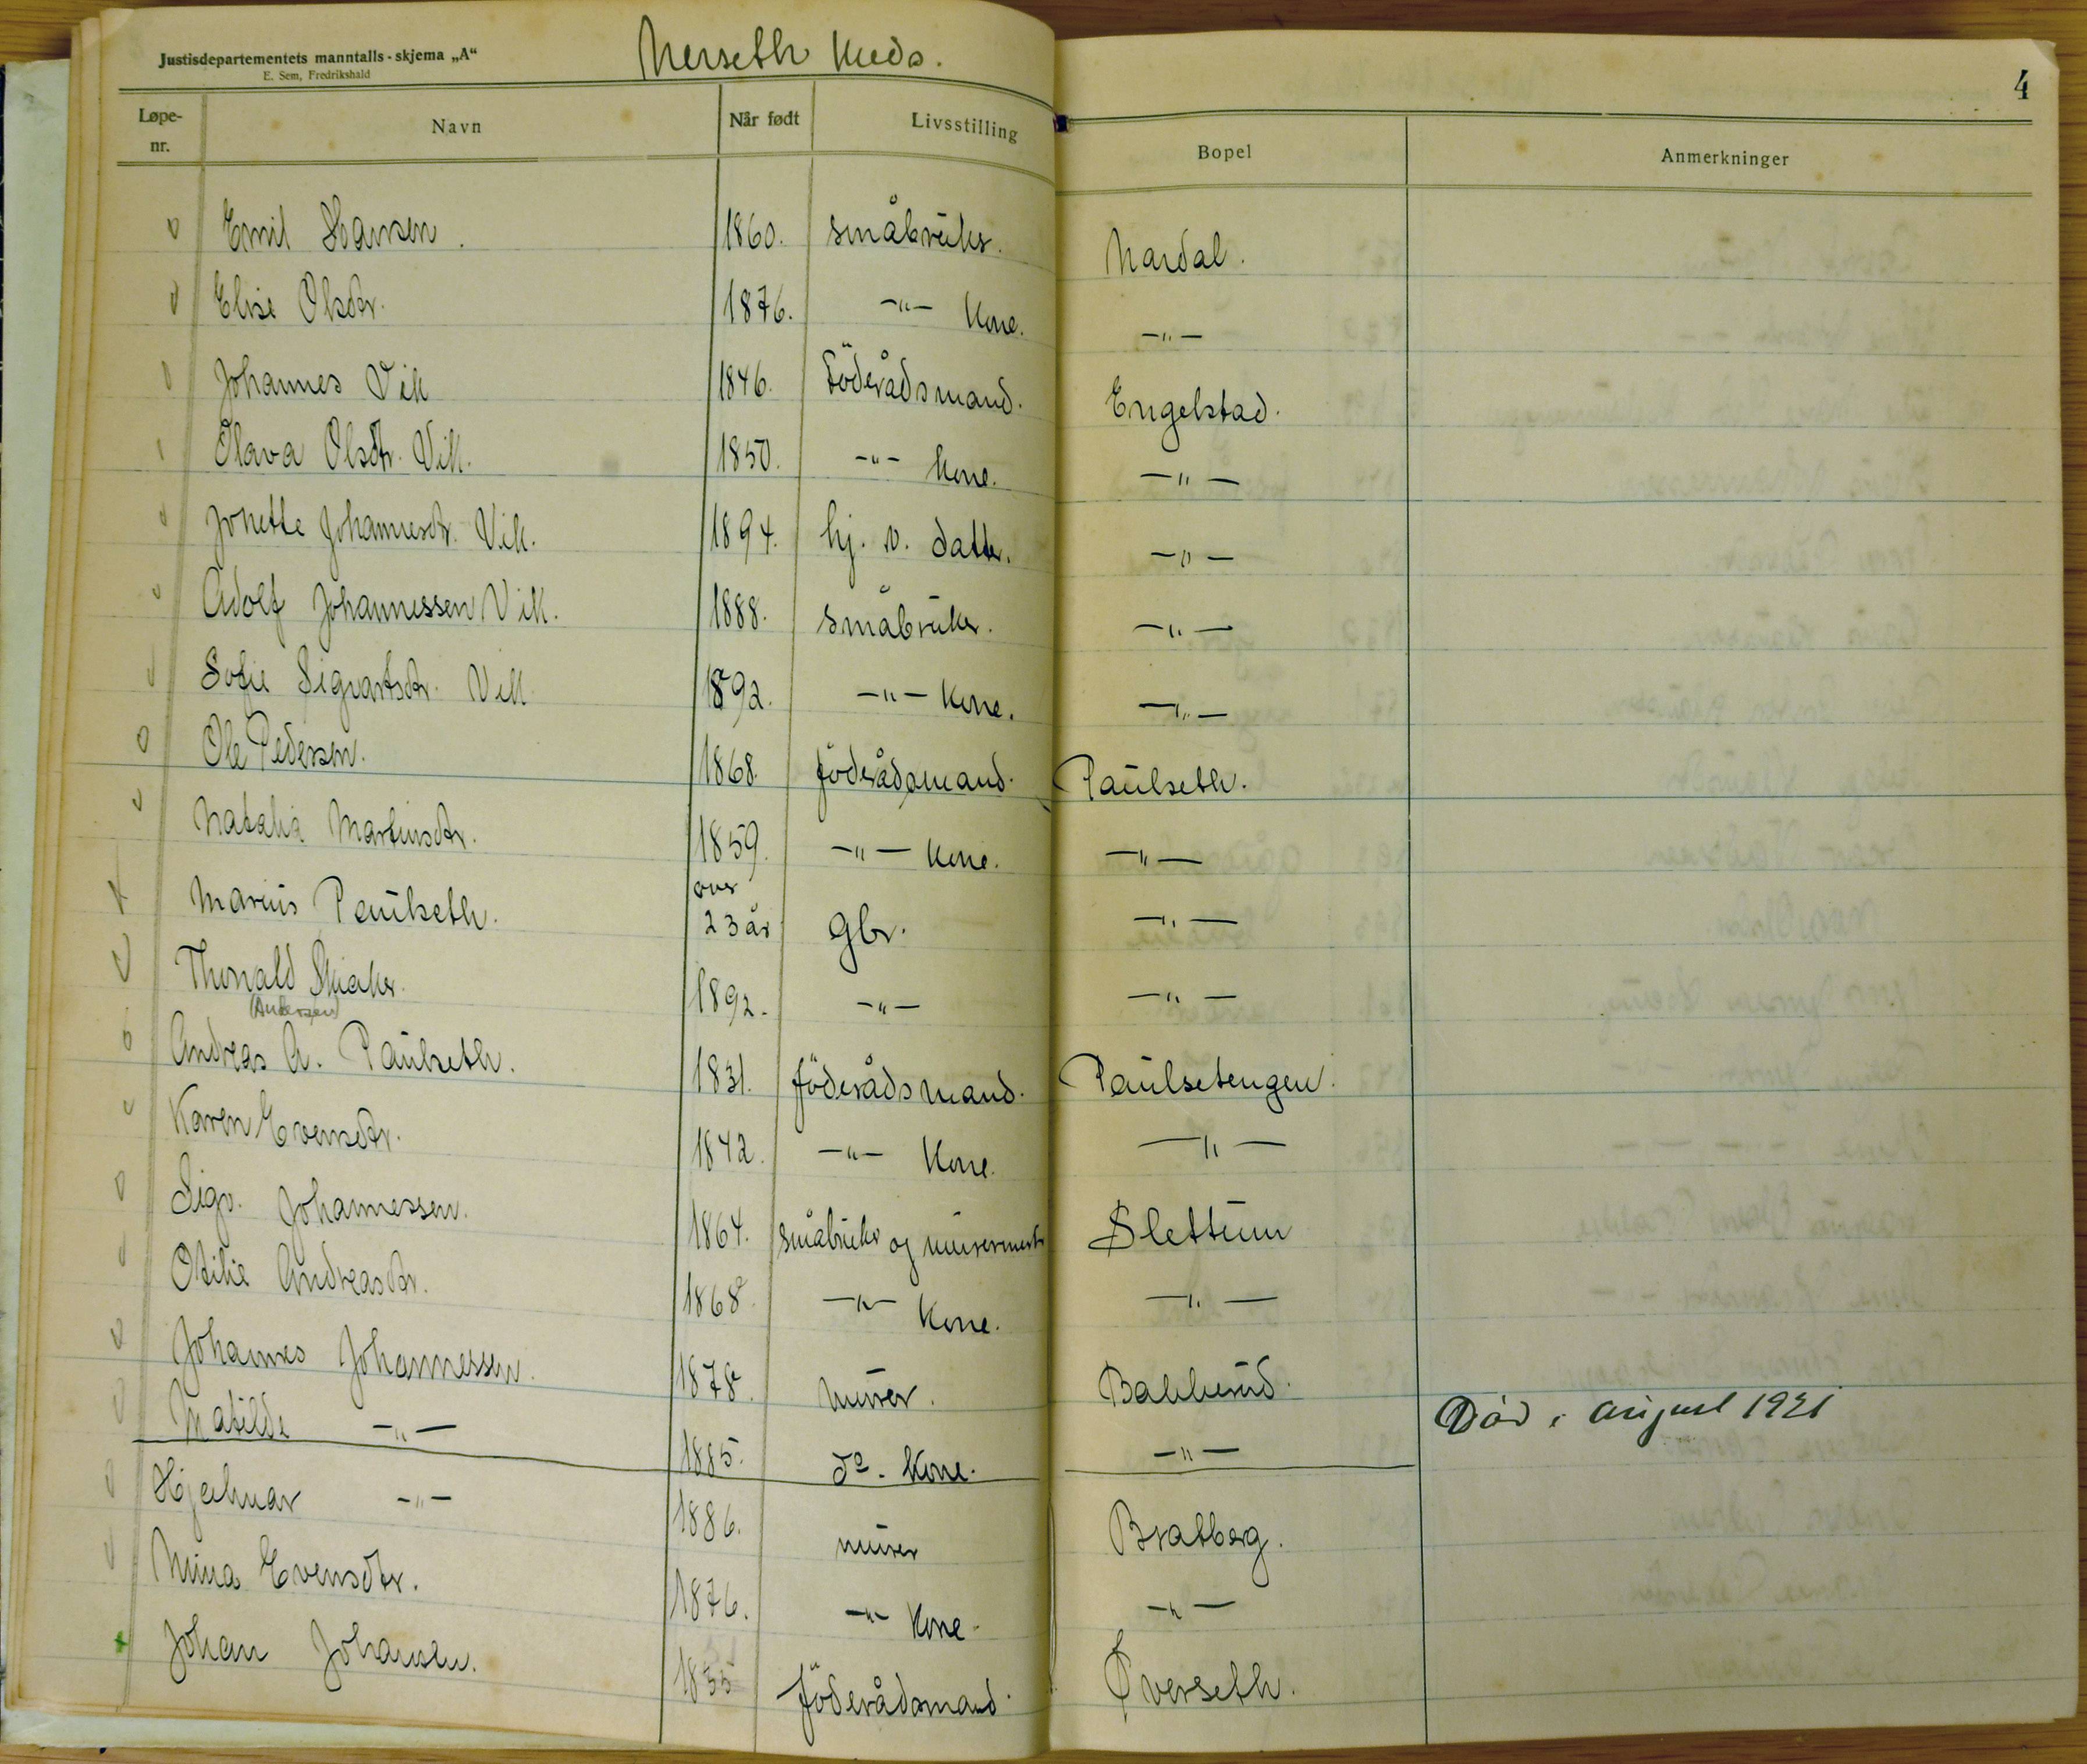 Justisdepartementets manntalls-skjema „A“
E. Sem, Fredrikshald
Nerseth Kreds.
4
Løpe-nr. Navn Når født Livsstilling Bopel Anmerkninger
Emil Hansen. 1860. småbruker. Nardal.
Elise Olsdtr. 1876. -"- Kone. -"-
Johannes Vik 1846. Föderådsmand. Engelstad.
Olava Olsdtr. Vik. 1850. -"- Kone. -"-
Jonette Johannesdtr. Vik. 1894. hj. v. datter. -"-
Adolf Johannessen Vik. 1888. småbruker. -"-
Sofie Sigvartsdtr. Vik 1892. -"- Kone. -"-
Ole Pedersen. 1868. föderådsmand. Paulseth.
Natalia Martinsdtr. 1859. -"- Kone. -"-
Marius Paulseth. over 23 år gbr. -"-
Thorvald Skiaker. 1892. -"- -"-
(Andersen)
Andreas A. Paulseth. 1831. föderådsmand. Paulsetengen.
Karen Evensdtr. 1842. -"- Kone. -"-
Sigv. Johannessen. 1864. småbruker og murermestr Slettum
Otilie Andreasdtr. 1868. -"- Kone. -"-
Johannes Johannessen. 1878. murer. Bakkerud.
Matilde -"- 1885. do. Kone. -"- Död i august 1921
Hjalmar -"- 1886. murer Bratberg.
Mina Evensdtr. 1876. -"- Kone. -"-
Johan Johansen. 1835 föderådsmand. Øverseth.